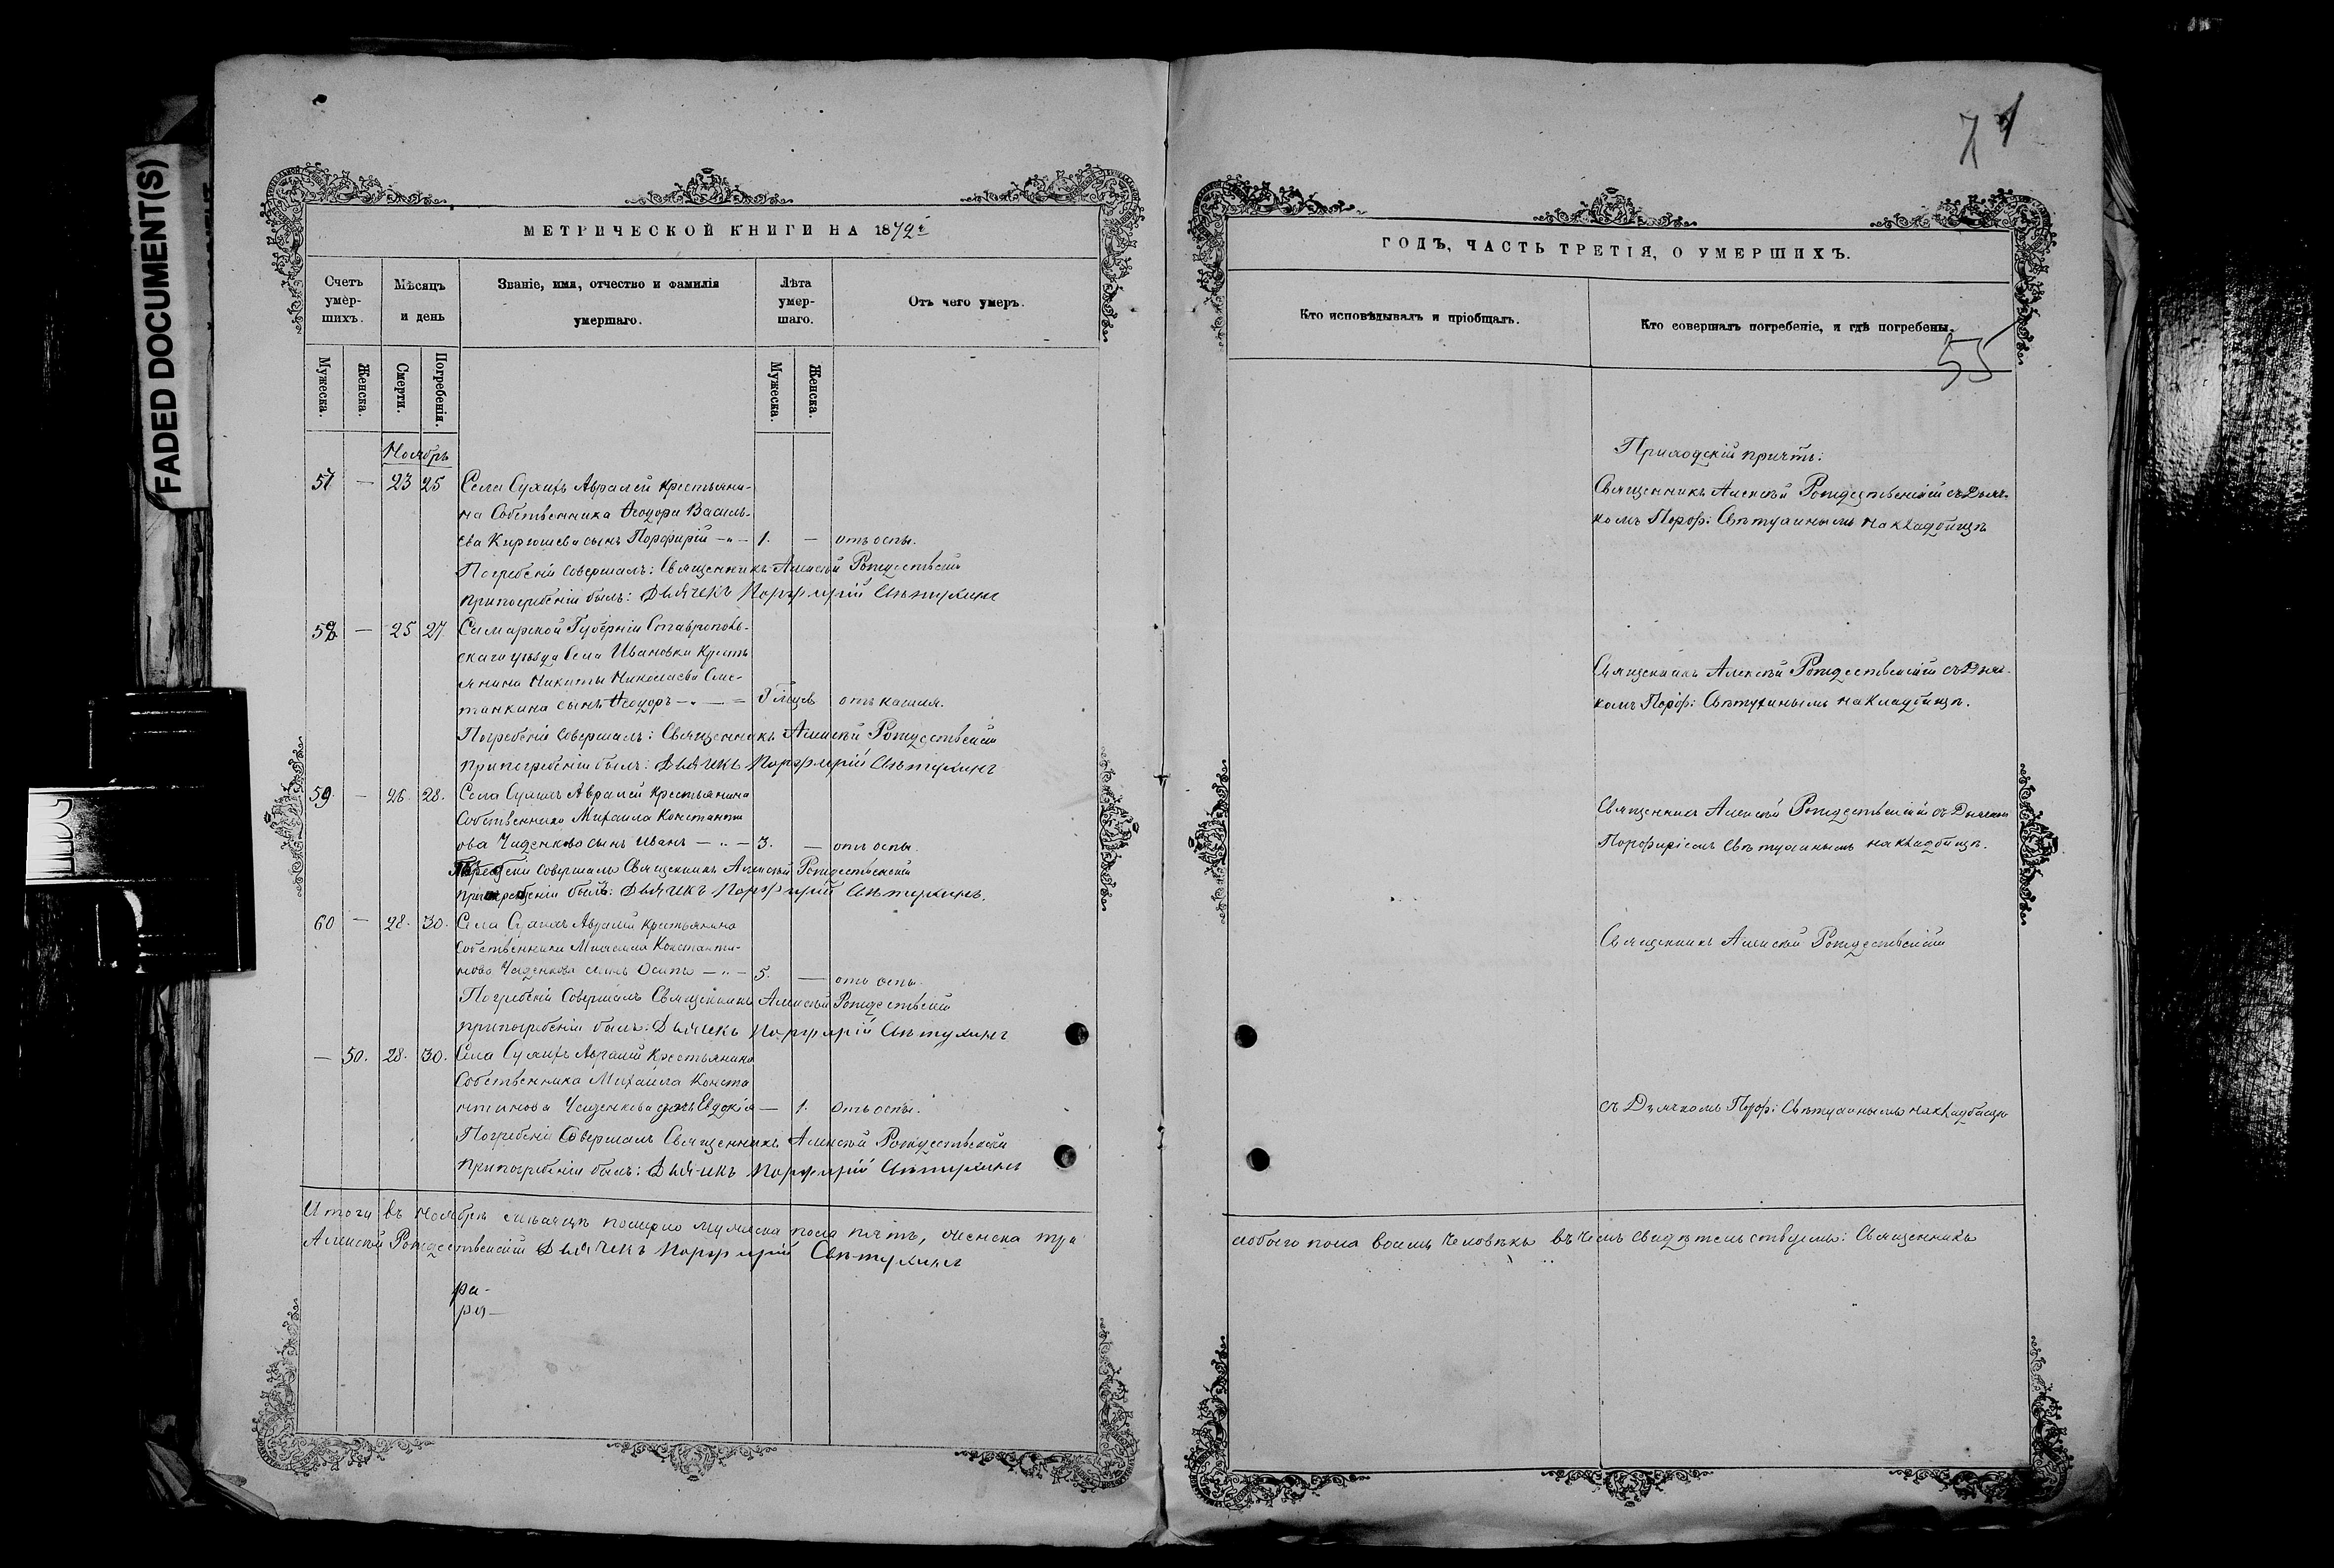 FADED DOCUMENT(S)
71
МЕТРИЧЕСКОЙ КНИГИ НА 1872 г
Счетъ умер-шихъ.
Мѣсяцъ и день
Званіе, имя, отчество и фамилія умершаго.
Лѣта умер-шаго.
Отъ чего умеръ.
Мужеска.
Женска.
Смерти.
Погребенія.
Мужеска
Женска.
Ноябрь
57 — 23 25 Села Сухихъ Авралей крестьяни-
на Собственника Ѳеодора Василь-
ева Кирюшева сынъ Порфирій — „ — 1. — отъ оспы.
Погребеніе Совершалъ: Священникъ Алексѣй Рождественскій
при погребеніи былъ: Дьячекъ Порфирій Свѣтухинъ
58 — 25 27. Самарской Губерніи Ставрополь-
скаго уѣзда Села Ивановки Кресть
янина Никиты Николаева
танкина сынъ Ѳеодоръ — „ — отъ кашля.
Погребеніе Совершалъ: Священникъ Алексѣй Рождественскій
при погребеніи былъ: Дьячекъ Порфирій Свѣтухинъ
59. — 26. 28. Села Сухихъ Авралей Крестьянина
Собственника Михаила Константи
ова Чиденкова сынъ Иванъ — „ — 3. — отъ оспы.
Совершалъ Священникъ Алексѣй Рождественскій
при погребеніи былъ: Дьячекъ Порфирій Свѣтухинъ.
60 — 28. 30. Села Сухихъ Авралей Крестьянина
Собственника Михаила Константи-
нова Чиденкова сынъ Осипъ — „ — 5. — отъ оспы.
Погребеніе Совершалъ Священникъ Алексѣй Рождественскій
при погребеніи былъ: Дьячекъ Порфирій Свѣтухинъ
— 50. 28. 30. Села Сухихъ Авралей Крестьянина
Собственника Михаила Конста
нтинова Чиденкова дочь Евдокія — 1. Отъ оспы.
Погребеніе Совершалъ Священникъ Алексѣй Рождественскій
При погребеніи былъ: Дьячекъ Порфирій Свѣтухинъ
Итого въ Ноябрѣ мѣсяцѣ померло мужеска пола пять, женска три
Алексѣй Рождественскій Дьячекъ Порфирій Свѣтухинъ
ГОДЪ, ЧАСТЬ ТРЕТІЯ, О УМЕРШИХЪ.
Кто исповѣдывалъ и пріобщалъ.
Кто совершалъ погребеніе, и гдѣ погребены.
55
Приходскій причтъ:
Священникъ Алексѣй Рождественскій съ Дьяч-
комъ Порф: Свѣтухинымъ на кладбищѣ
Священникъ Алексѣй Рождественскій съ Дьяч-
комъ Порф: Свѣтухинымъ на кладбищѣ.
Священникъ Алексѣй Рождественскій съ Дьячкомъ
Порфиріемъ Свѣтухинымъ на кладбищѣ.
Священникъ Алексѣй Рождественскій
съ Дьячкомъ Порф: Свѣтухинымъ на кладбищѣ
обоего пола восемь человѣкъ въ чемъ свидѣтельствуемъ: Священникъ